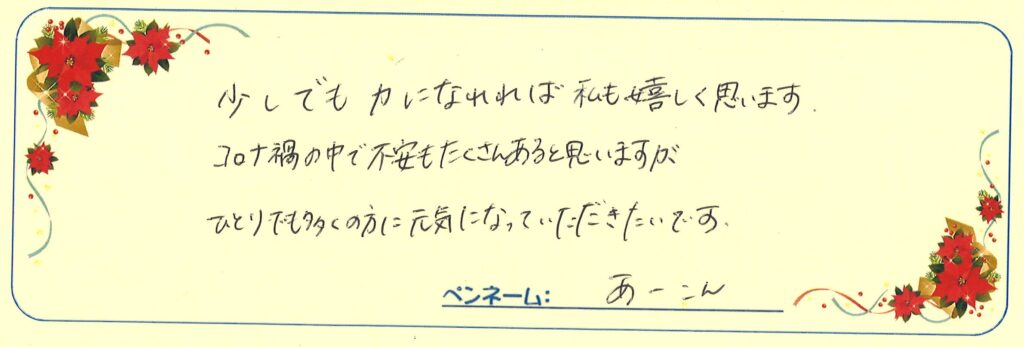 少しでも力になれれば私も嬉しく思います.
コロナ禍の中で不安もたくさんあると思いますが
ひとりでも多くの方に元気になっていただきたいです.
ペンネーム: あーこん